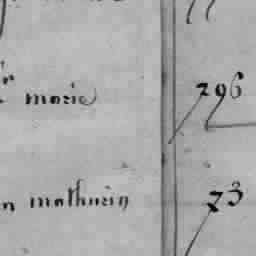 marie 296
mathurin 23